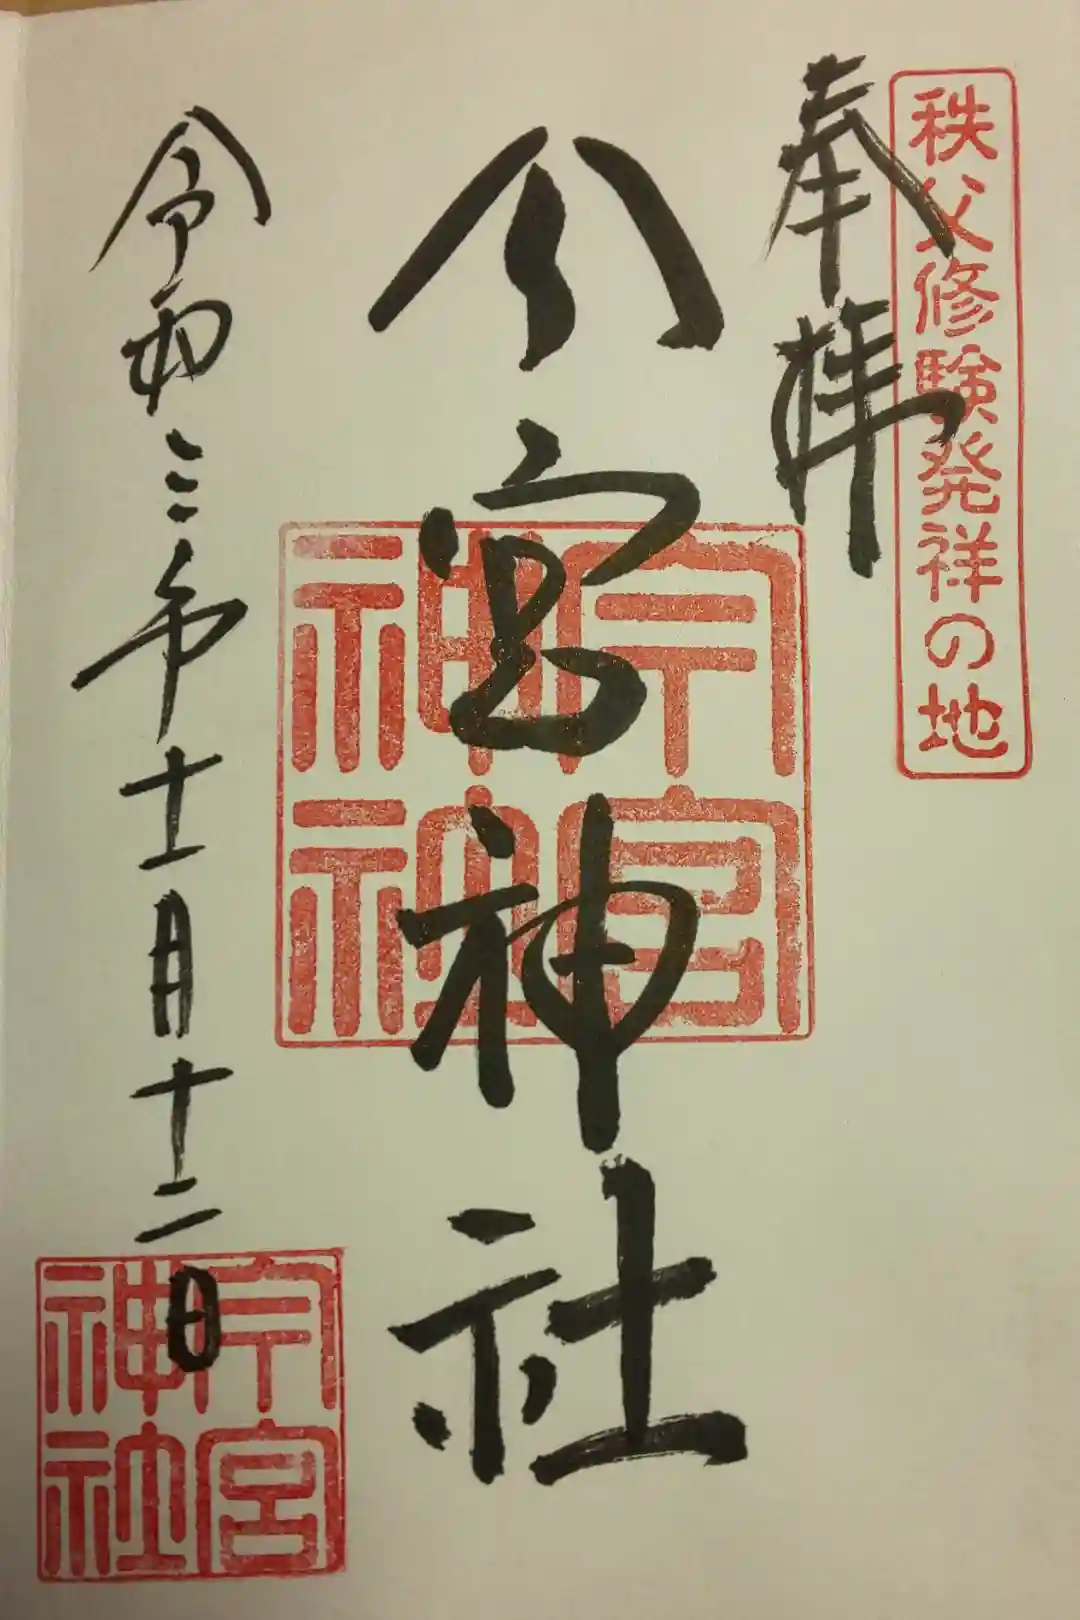 秩父修験発祥の地
奉拝
今宮神社
今宮
神社
令和三年十一月十二日
今宮
神社